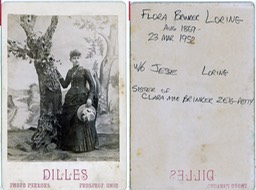 DILLES
PHOTO PARLORS. PROSPECT OHIO
FLORA BRINKER LORING
AUG 1869-
23 MAR 1952
W/O JESSE LORING
SISTER OF
CLARA MAE BRINKER ZEIG-PETTY
DILLES